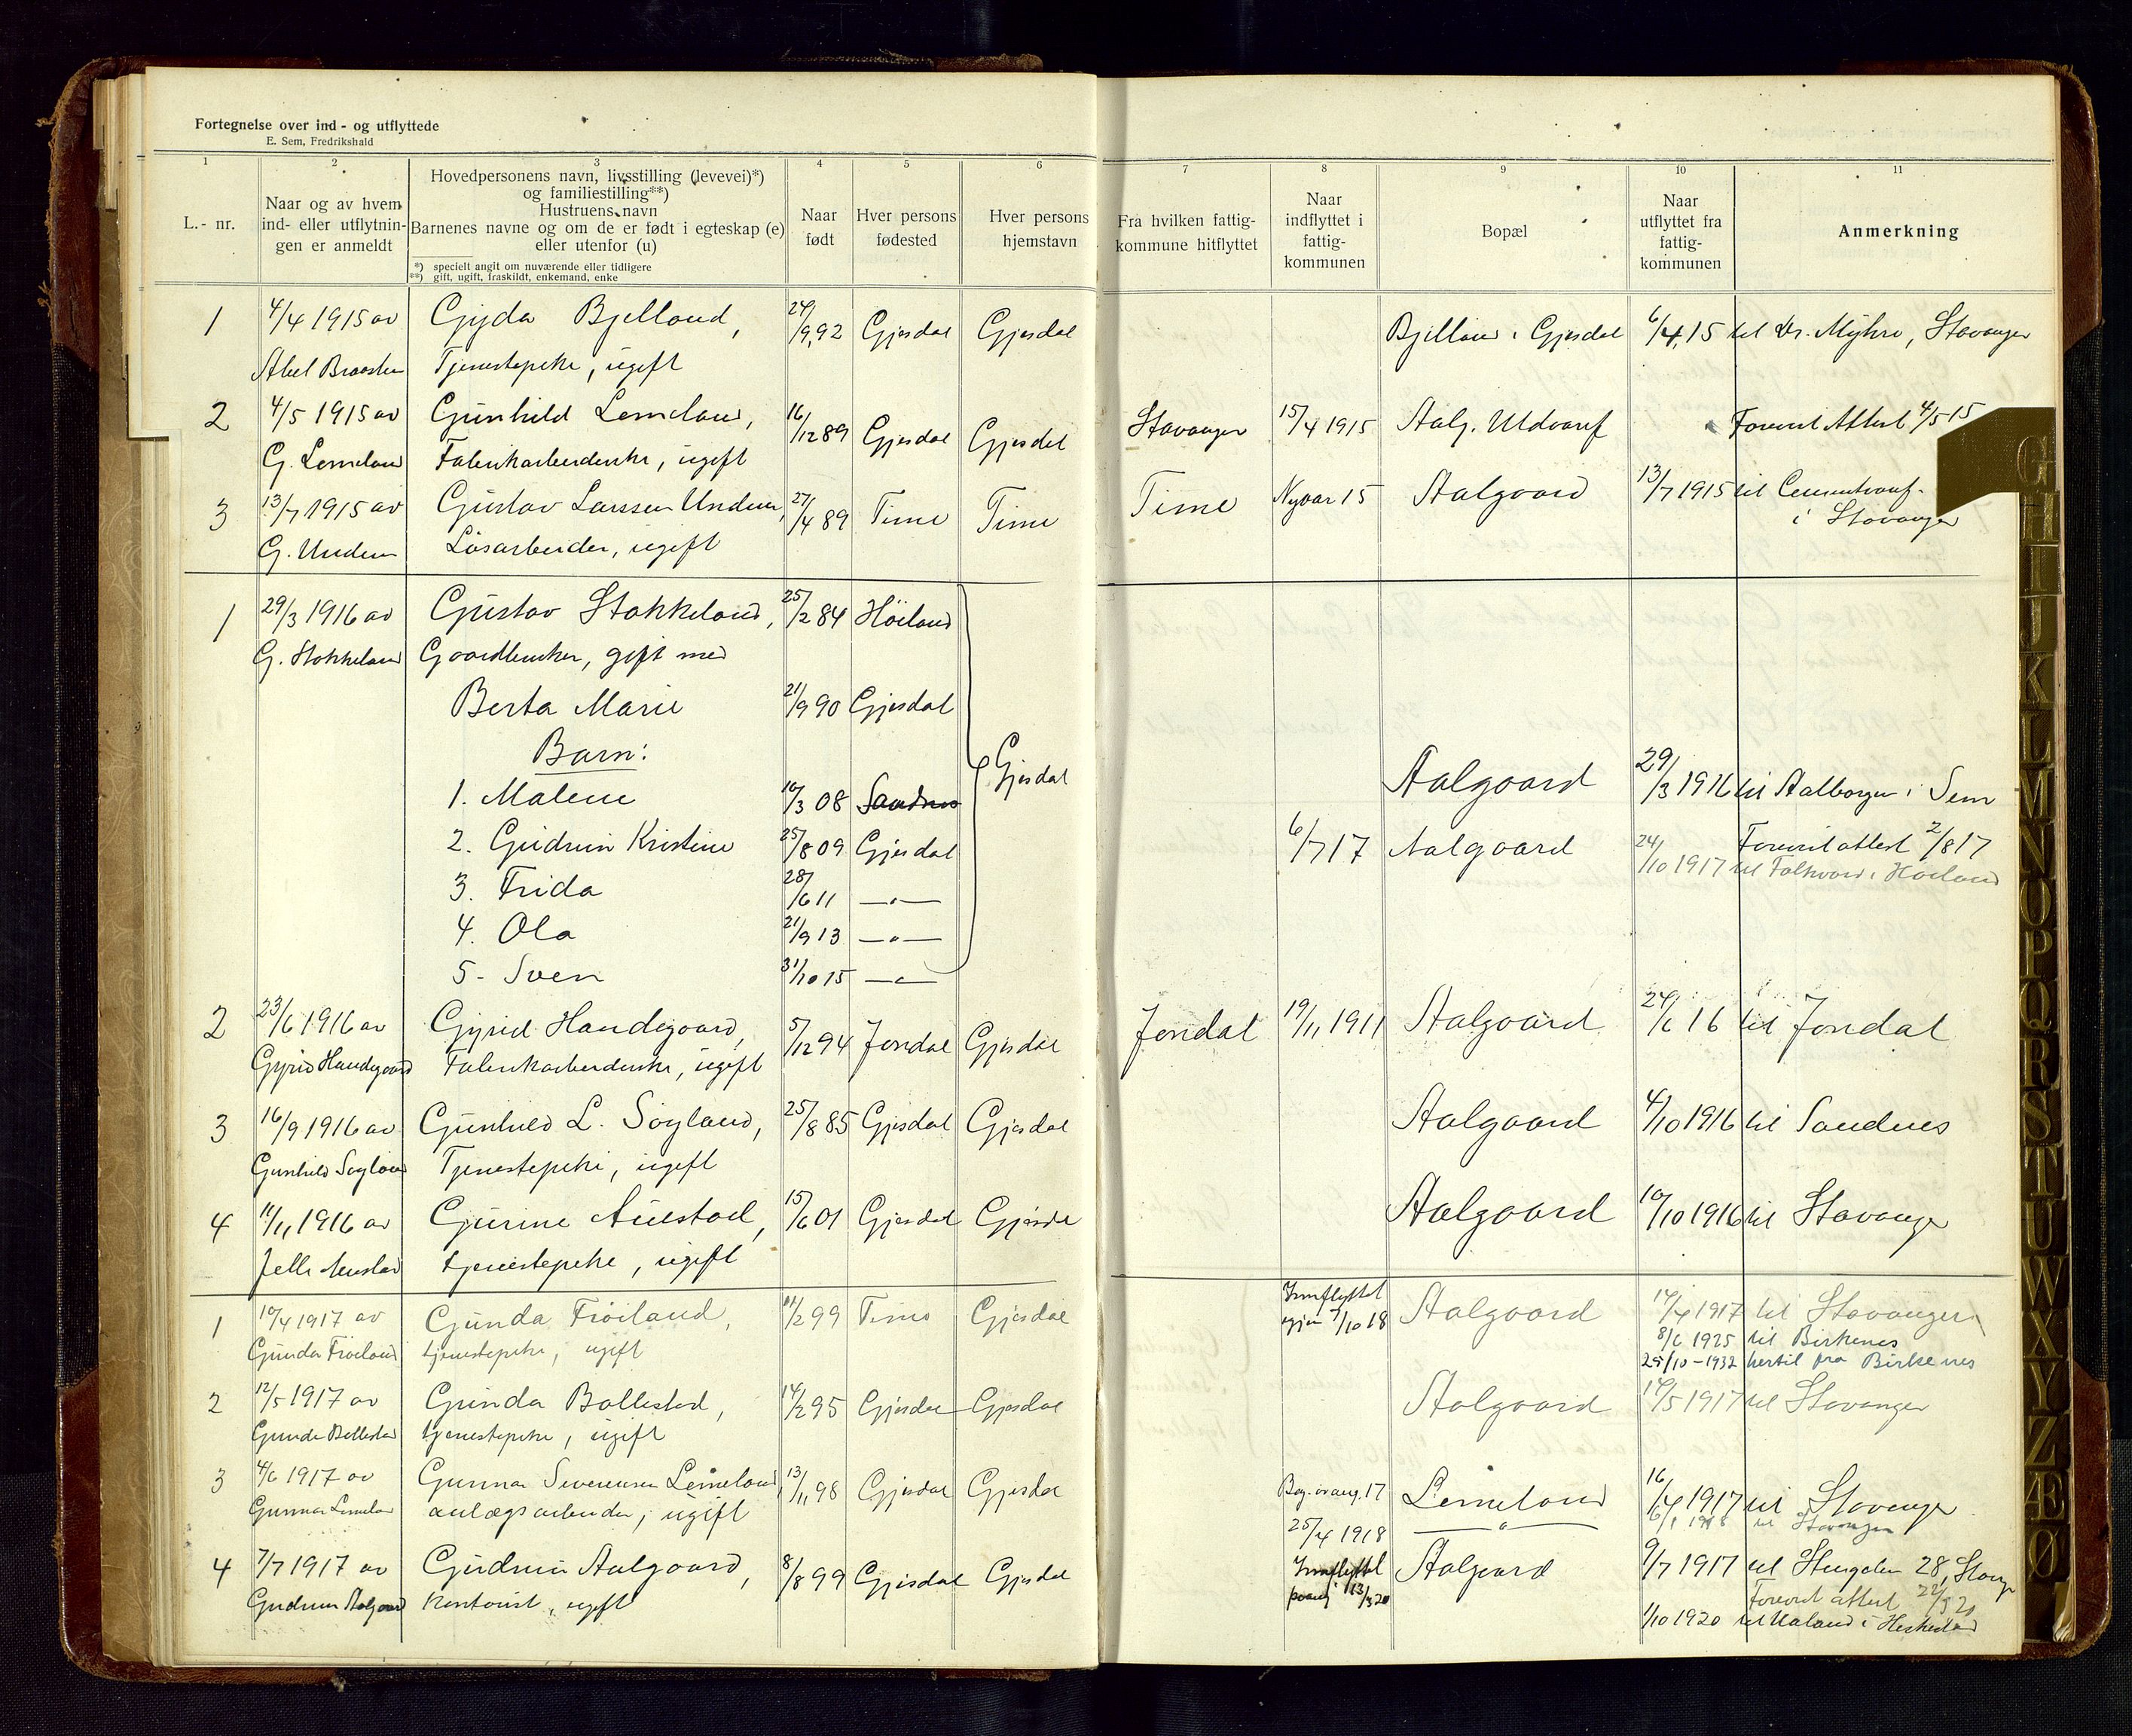 Fortegnelse over ind- og utflyttede
E. Sem, Fredrikshald
1 2 3 4 5 6 7 8 9 10 11
L.- nr.
Naar og av hvem
ind- eller utflytnin-
gen er anmeldt
Hovedpersonens navn, livsstilling (levevei)*)
og familiestilling**)
Hustruens navn
Barnenes navne og om de er født i egteskap (e)
eller utenfor (u)
*) specielt angit om nuværende eller tidligere
**) gift, ugift, fraskildt, enkemand, enke
Naar
født
Hver persons
fødested
Hver persons
hjemstavn
Fra hvilken fattig-
kommune hitflyttet
Naar
indflyttet i
fattig-
kommunen
Bopæl
Naar
utflyttet fra
fattig-
kommunen
Anmerkning
1 4/4 1915 av Gyda Bjelland, 24/9,92 Gjesdal Gjesdal Bjelland i Gjesdal 6/4,15 til Dr. Myhre, Stavanger
Abel Braasten Tjenestepike, ugift
2 4/5 1915 av Gunhild Lemeland, 16/12 89 Gjesdal Gjesdal Stavanger 15/4 1915 Aalg. Uldvarf Forevist Attest 4/5 15
G. Lemeland Fabrikarbeiderske, ugift
3 13/7 1915 av Gustav Larssen Undem, 27/4 89 Time Time Time Nyaar 15 Aalgaard 13/7 1915 til Cementvarf.
i Stavanger
G. Undem Løsarbeider, ugift
1 29/3 1916 av Gustav Stokkeland, 25/2 84 Höiland
G. Stokkeland Gaardbruker, gift med
Berta Marie 21/9 90 Gjesdal
Barn:
Gjesdal
1. Malene 16/3 08 Sandnes Aalgaard 29/3 1916 til Aalborgen i Sem
2. Gudrun Kristine 25/8 09 Gjesdal 6/7 17 Aalgaard Forevist attest 2/8 17
24/10 1917 til Folkvord i Høiland
3. Frida 28/6 11 —"—
4. Ola 21/9 13 —"—
5- Sven 31/10 15 —"—
2 23/6 1916 av Gyrid Handegaard, 5/12 94 Jondal Gjesdal Jondal 19/11 1911 Aalgaard 24/6 16 til Jondal
Gyrid Handegaard Fabrikarbeiderske, ugift
3 16/9 1916 av Gunhild L. Söyland, 25/8 85 Gjesdal Gjesdal Aalgaard 4/10 1916 til Sandnes
Gunhild Søyland Tjenestepike, ugift
4 11/11 1916 av Gurine Auestad, 15/6 01 Gjesdal Gjesdal Aalgaard 10/10 1916 til Stavanger
tjenestepike, ugift
1 10/4 1917 av Gunda Fröiland, 11/2 99 Time Gjesdal Innflyttet Aalgaard 14/4 1917 til Stavanger
igjen 7/10 18
Gunda Fröiland tjenestepike, ugift 8/6 1925 til Birkenes
25/10-1932 hertil fra Birkenes
2 12/5 1917 av Gunda Bollestad, 14/2 95 Gjesdal Gjesdal Aalgaard 14/5 1917 til Stavanger
Gunda Bollestad tjenestepike, ugift
3 4/6 1917 av Gunnar Severinsen Lemeland, 13/11 98 Gjesdal Gjesdal Beg. av aug. 17 Lemeland 16/4 1917 til Stavanger
Gunnar Lemeland anlægsarbeider, ugift 25/4 1918 —"— 6/1 1918 til Stavanger
4 7/7 1917 av Gudrun Aalgaard, 8/8 99 Gjesdal Gjesdal Innflyttet Aalgaard 9/7 1917 til Stengaten 28,
13/3 20
Gudrun Aalgaard Kontorist, ugift Forevist attest 22/3 20
1/10 1920 til Ualand i Heskestad
G
H
I
J
K
L
M
N
O
P
Q
R
S
T
U
W
X
Y
Z
Æ
Ø